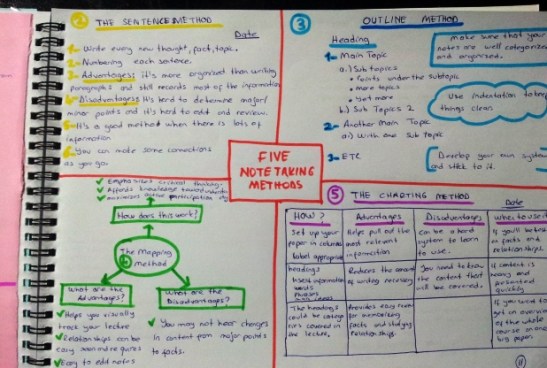 2 THE SENTENCE METHOD
Date
1- Write every new thought, fact, topic.
2- Numbering each sentence.
3- Advantages: It's more organized than writing
paragraphs and still records most of the information
4- Disadvantages: It's hard to determine major/
minor points and it's hard to edit and review.
5- It's a good method when there is lots of
information
6- You can make some connections
as you go
3 OUTLINE METHOD
Heading
1- Main Topic
a.) Sub topics
• Points under the subtopic
• more topics
b) Sub Topics 2
2- Another Main Topic
ai) With one Sub Topic
3- ETC
make sure that your
notes are well categorized
and organized.
Use indentation to keep
things clean
Develop your own system
and stick to it.
FIVE
NOTE TAKING
METHODS
✓ Emphasizes critical thinking.
✓ Affords knowledge
✓ maximizes active participation
How does this work?
The Mapping
4 method
What are the
Advantages?
What are the
Disadvantages?
✓ Helps you visually
track your lecture
✓ Relationships can be
✓ Easy to edit notes
✓ You may not hear changes
in content from major points
to facts.
5 THE CHARTING METHOD
Date
HOW?
Advantages
Disadvantages
When to use it
Set up your
paper in columns
label appropriate
Helps pull out the
most relevant
information
Can be a hard
system to learn
to use.
If you'll be
on facts and
relationships.
headings
Reduces the amount
of writing necessary
You need to know
the content that
will be covered.
If content is
heavy and
presented
quickly.
The headings
could be catego
ries covered in
the lecture.
Provides easy
for memorizing
facts and studying
relationships.
If you want to
get an overview
of the whole
course on one
big paper.